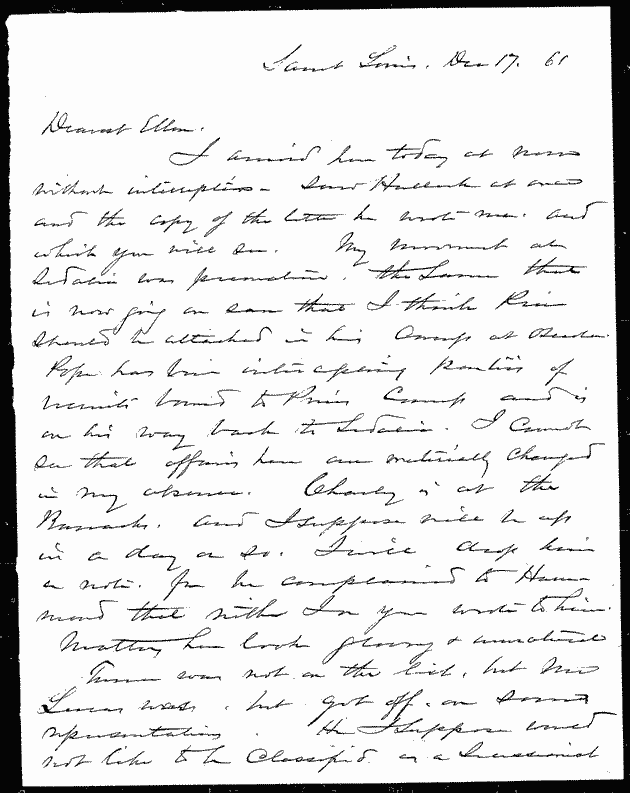 Saint Louis. Dec 17. 61
Dearest Ellen.
I arrived here today at noon
without interruption - saw Halleck at once
and the copy of the letter he wrote me. and
which you will see. My movement at
Sedalia was premature. the same that
is now going on save that I think Price
should be attacked in his Camp at Osceola.
Pope has been intercepting parties of
recruits bound to Prices Camp and is
on his way back to Sedalia. I cannot
see that affairs here are materially changed
in my absence. Charley is at the
Barracks. and I suppose will be up
in a day or so. I will drop him
a note. for he complained to Ham-
mond that neither I or you wrote to him.
Matters here look gloomy & unnatural
Turner was not on the list, but Mr
Lucas was. but got off on some
representations. He I suppose would
not like to be Classified as a Secessionist